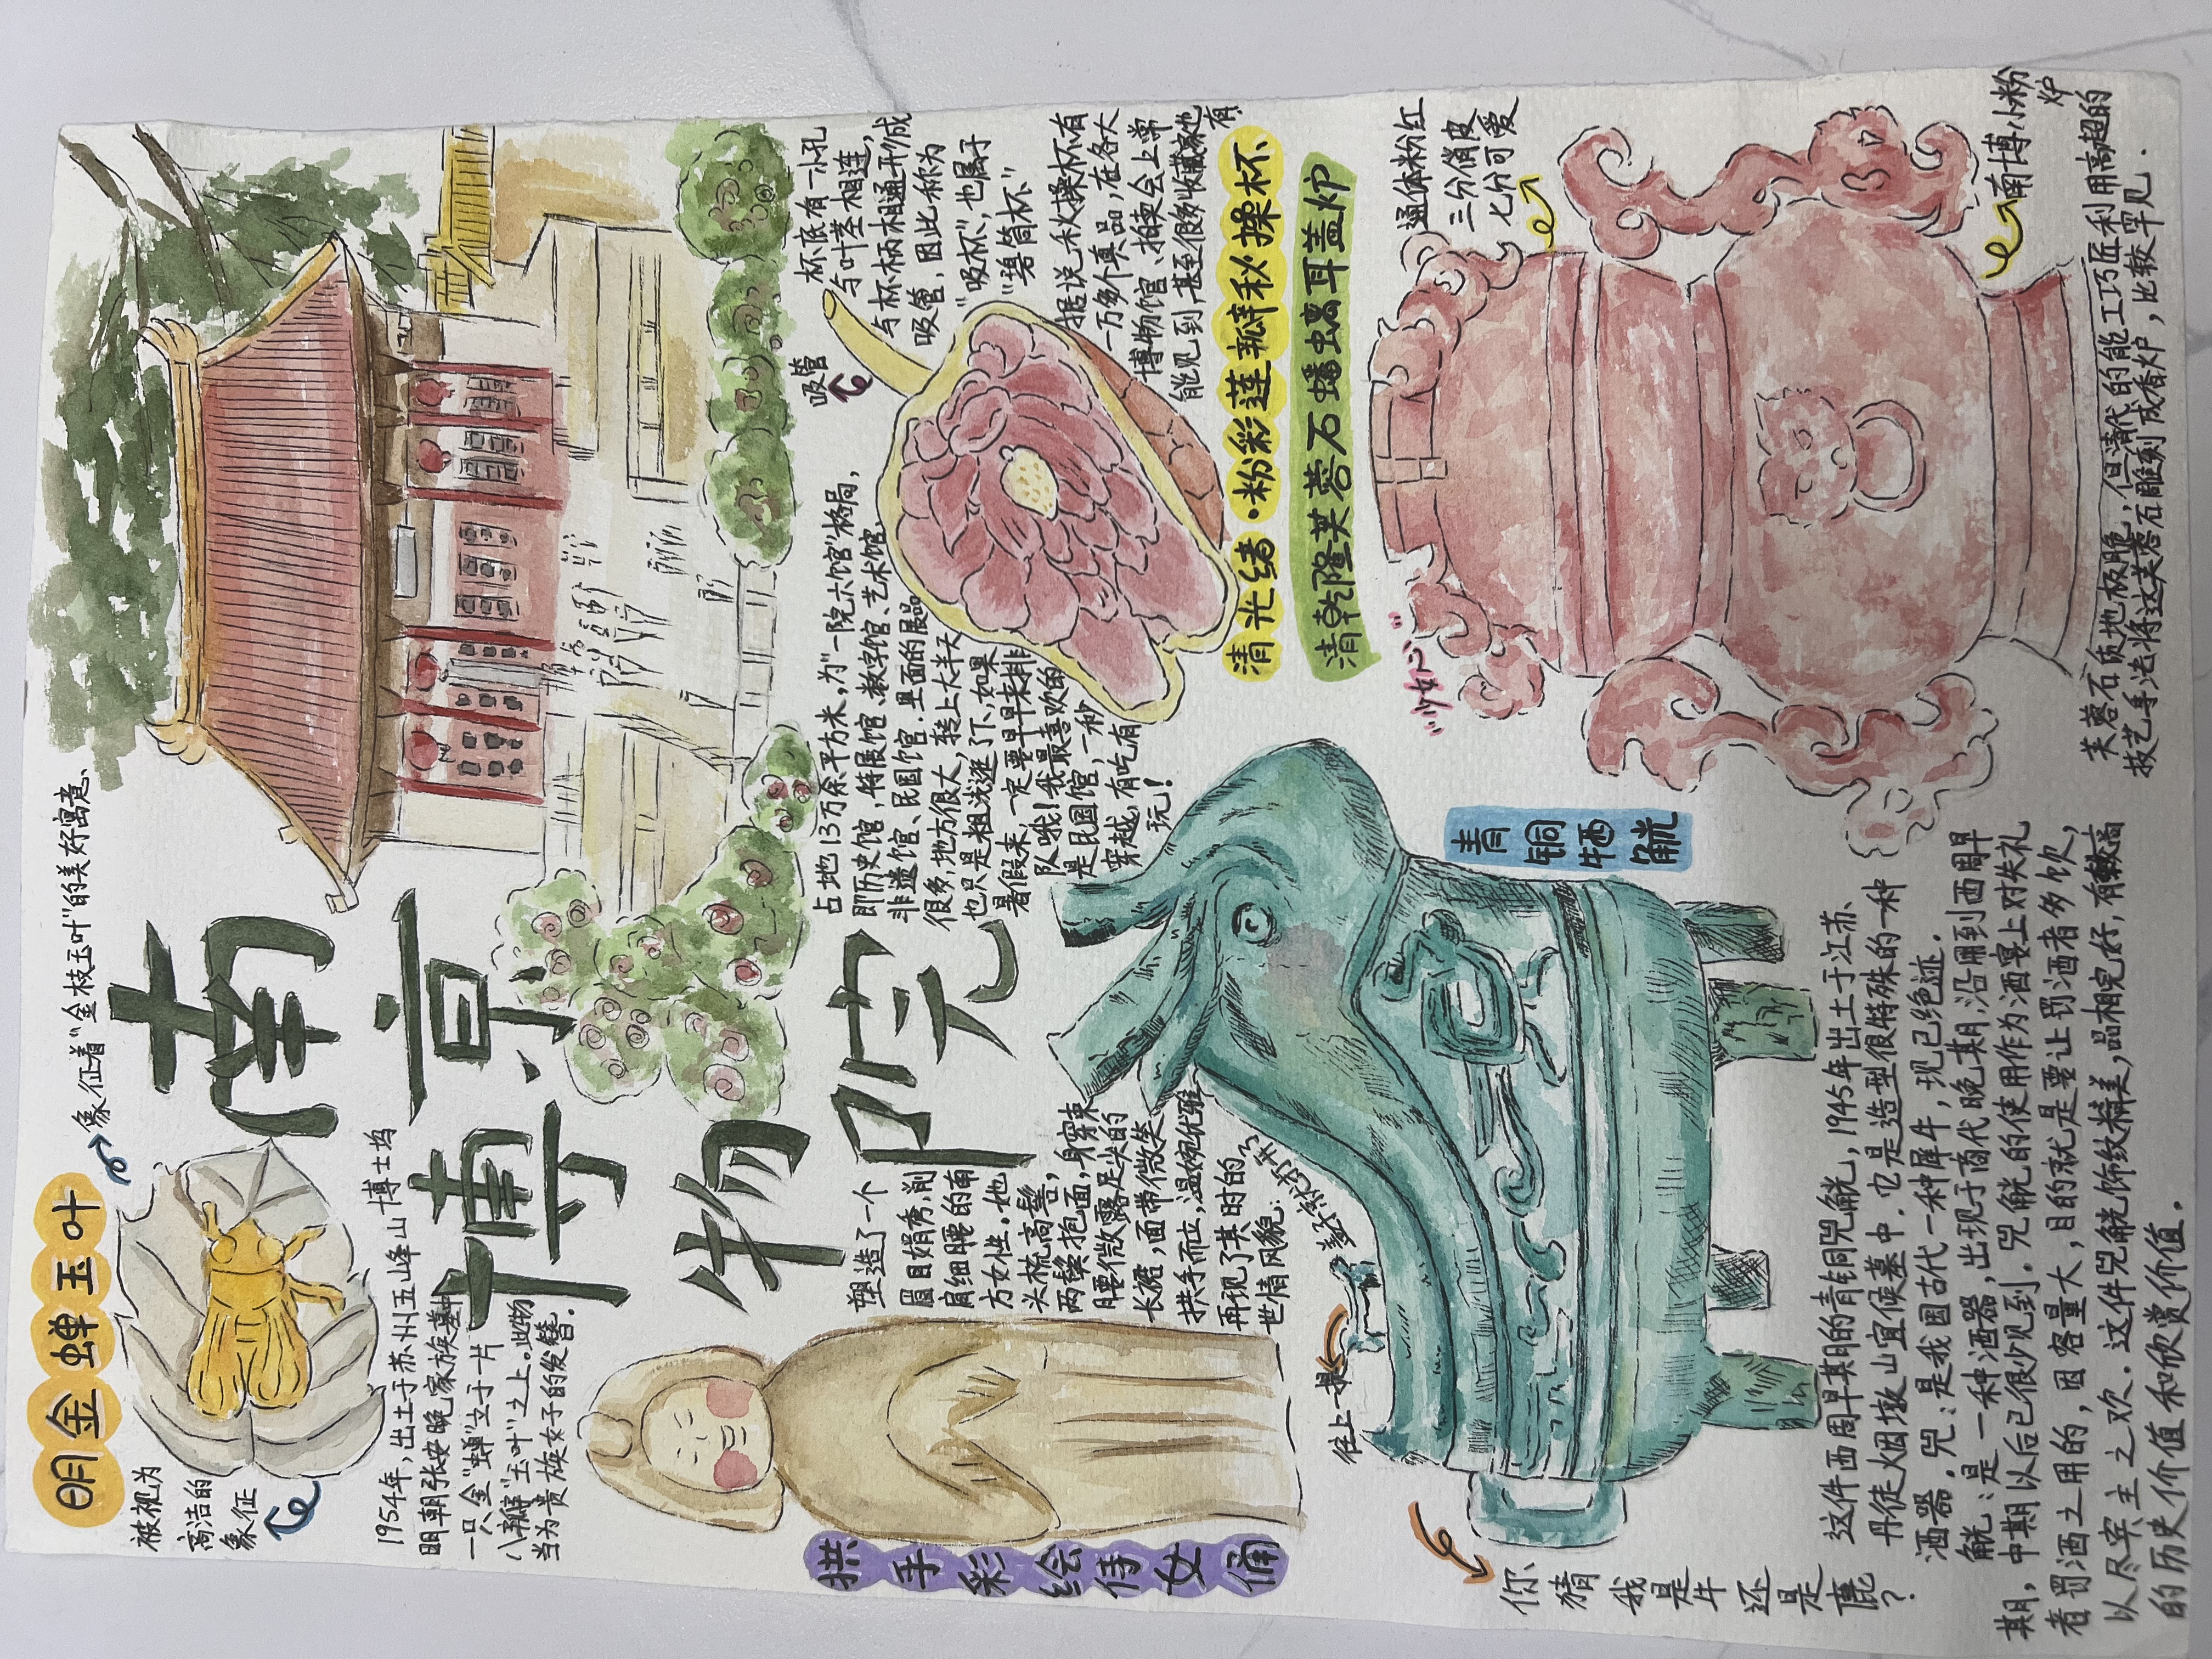 明金蝉玉叶
象征着“金枝玉叶”的美好寓意、
被视为
高洁的
象征
南京
博物院
1954年，出土于苏州五峰山博士坞
明朝张安晚家族墓中
一只金“蝉”立于一片
八瓣“玉叶”之上。此物
当为贵族女子的发簪.
拱手彩绘侍女俑
塑造了一个
眉目娟秀，削
肩细腰的南
方女性。她
头梳高髻，
两鬓抱面，身穿束
腰微露足尖的
长裙，面带微笑
拱手而立，温婉优雅
再现了其时的
世情风貌.
占地13万余平方米，为“一院六馆”格局，
即历史馆，特展馆、数字馆、艺术馆、
非遗馆、民国馆.里面的展品
很多，地方很大，转上大半天
也只是粗浅逛了下，如果
暑假来，一定要早早来排
队哦！我最喜欢的
是民国馆，一秒
穿越，有吃有
玩！
吸管
杯底有一小孔
与叶茎相连，
与杯柄相通形成
吸管，因此称为
“吸杯”，也属于
“碧筒杯”
据说秋操杯有
一万多个真品，在各大
博物馆、拍卖会上常
能见到，甚至很多收藏家也
有.
清光绪·粉彩莲瓣秋操杯
清乾隆芙蓉石蟠螭耳盖炉
往上一提
盖子就打开了
青铜牺觥
你猜我是牛还是鹿？
这件西周早期的青铜兕觥，1945年出土于江苏、
丹徒烟墩山宜侯墓中.它是造型很特殊的一种
酒器.兕：是我国古代一种犀牛，现已绝迹.
觥：是一种酒器，出现于商代晚期，沿用到西周早
期，中期以后已很少见到.兕觥的使用作为酒宴上对失礼
者罚酒之用的，因容量大，目的就是要让罚酒者多饮，
以尽宾主之欢.这件兕觥饰纹精美，品相完好，有较高
的历史价值和欣赏价值.
“少女心”
通体粉红
三分俏皮
七分可爱
南博小粉
炉
芙蓉石质地极脆，但清代的能工巧匠利用高超的
技艺手法将这芙蓉石雕刻成香炉，比较罕见.